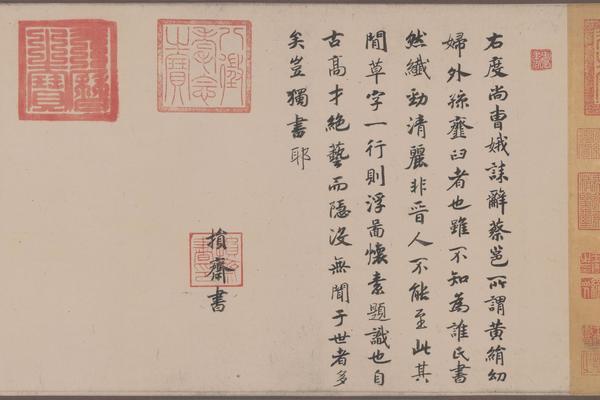 右度尚曹娥誄辭蔡邕所謂黃絹幼
婦外孫齏臼者也雖不知為誰氏書
然纖勁清麗非晉人不能至此其
間草字一行則浮啚懷素題識也自
古高才絕藝而隱沒無聞于世者多
矣豈獨書耶
損齋書
八徵耄念之寶